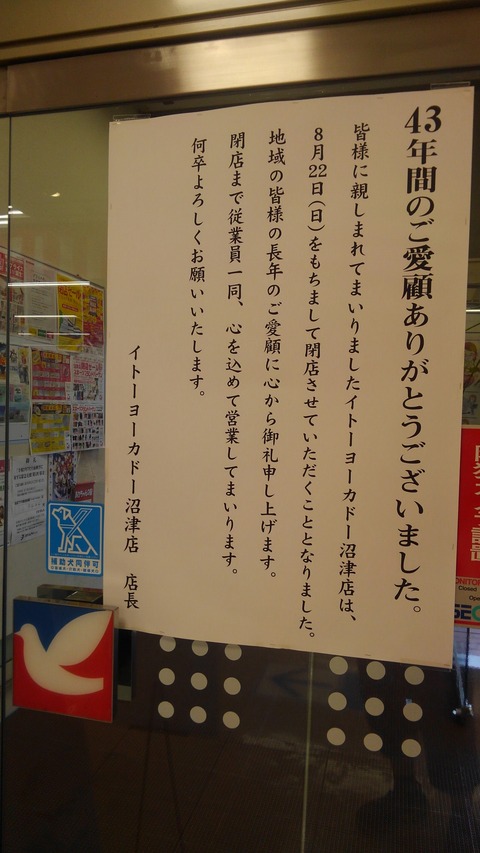 43年間のご愛顧ありがとうございました。
皆様に親しまれてまいりましたイトーヨーカドー沼津店は、
8月22日(日)をもちまして閉店させていただくこととなりました。
地域の皆様の長年のご愛顧に心から御礼申し上げます。
閉店まで従業員一同、心を込めて営業してまいります。
何卒よろしくお願いいたします。
イトーヨーカドー沼津店 店長
補助犬同伴可
Closed